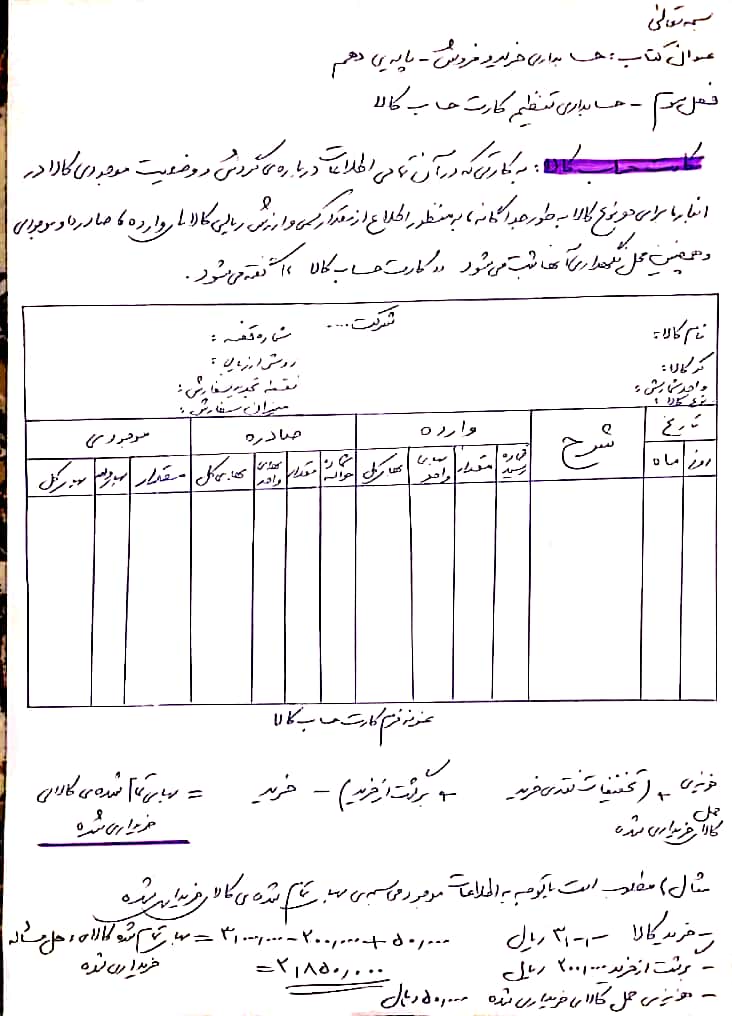 بسمه تعالی
عنوان کتاب: حسابداری خرید و فروش - پایه ی دهم
فصل سوم - حسابداری تنظیم کارت حساب کالا
کارت حساب کالا: به کارتی که در آن تمامی اطلاعات درباره ی گردش و وضعیت موجودی کالا در
انبار ما برای هر نوع کالا به طور جداگانه، به منظور اطلاع از مقدار کمی و ارزش ریالی کالاهای وارده، صادره و موجودی
و همچنین محل نگهداری آنها ثبت می شود "کارت حساب کالا" گفته می شود.
شرکت....
نام کالا: شماره قفسه:
کد کالا: روش ارزیابی:
واحد شمارش: نقطه تجدید سفارش:
نوع کالا: میزان سفارش:
تاریخ شرح وارده صادره موجودی
روز ماه شماره رسید مقدار بهای واحد بهای کل شماره حواله مقدار بهای واحد بهای کل مقدار بهای واحد بهای کل
نمونه فرم کارت حساب کالا
هزینه ی حمل کالای خریداری شده + (تخفیفات نقدی خرید + برگشت از خرید) - خرید = بهای تمام شده ی کالای خریداری شده
مثال) مطلوب است با توجه به اطلاعات موجود محاسبه ی بهای تمام شده ی کالای خریداری شده
- خرید کالا ۳,۰۰۰,۰۰۰ ریال
حل مساله: بهای تمام شده کالای خریداری شده = ۳,۰۰۰,۰۰۰ - ۲۰۰,۰۰۰ + ۵۰,۰۰۰
- برگشت از خرید ۲۰۰,۰۰۰ ریال
= ۲,۸۵۰,۰۰۰
- هزینه ی حمل کالای خریداری شده ۵۰,۰۰۰ ریال